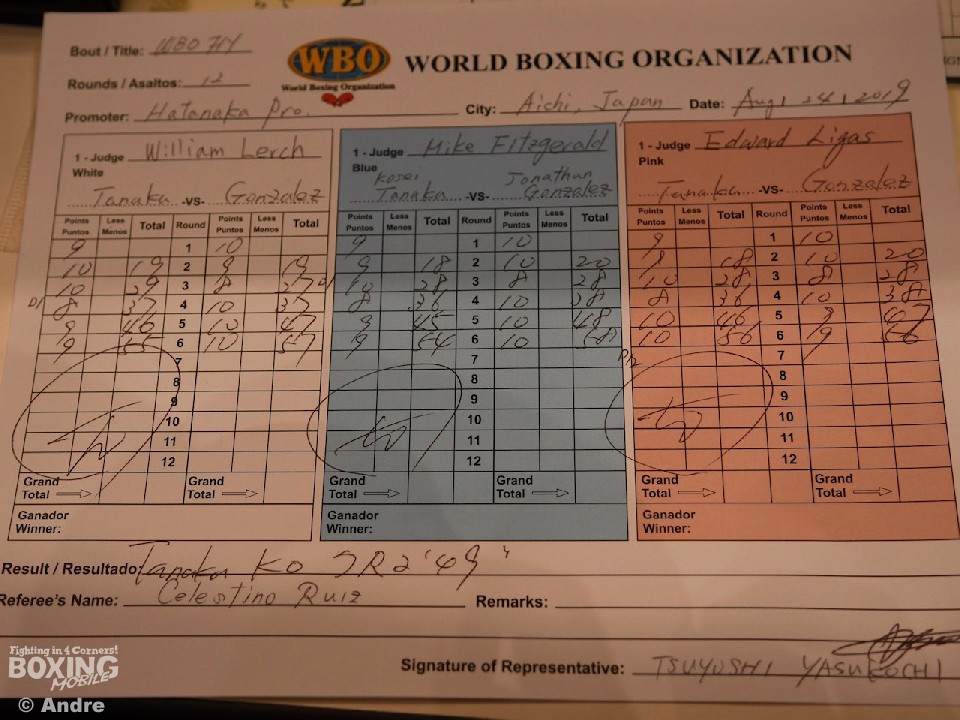 Bout / Title: WBO FLY
Rounds / Asaltos: 12
WBO
World Boxing Organization
WORLD BOXING ORGANIZATION
Promoter: Hatanaka Pro. City: Aichi, Japan Date: Aug 24 2019
1 - Judge William Lerch
White
Tanaka -VS- Gonzalez
Points Puntos Less Menos Total Round Points Puntos Less Menos Total
9 1 10
10 19 2 9 19
10 29 3 8 27
8 37 4 10 37
9 46 5 10 47
9 55 6 10 57
7
8
9
10
11
12
Grand Total Grand Total
Ganador
Winner:
1 - Judge Mike Fitzgerald
Blue
Kosei Tanaka -VS- Jonathan Gonzalez
Points Puntos Less Menos Total Round Points Puntos Less Menos Total
9 1 10
9 18 2 10 20
10 28 3 8 28
8 36 4 10 38
9 45 5 10 48
9 54 6 10 58
7
8
9
10
11
12
Grand Total Grand Total
Ganador
Winner:
1 - Judge Edward Ligas
Pink
Tanaka -VS- Gonzalez
Points Puntos Less Menos Total Round Points Puntos Less Menos Total
9 1 10
9 18 2 10 20
10 28 3 8 28
8 36 4 10 38
10 46 5 9 47
10 56 6 9 56
7
8
9
10
11
12
Grand Total Grand Total
Ganador
Winner:
Result / Resultado: Tanaka KO 7R 2'49"
Referee's Name: Celestino Ruiz Remarks:
Signature of Representative: TSUYOSHI YASUKOCHI
Fighting in 4 Corners!
BOXING
MOBILE
© Andre